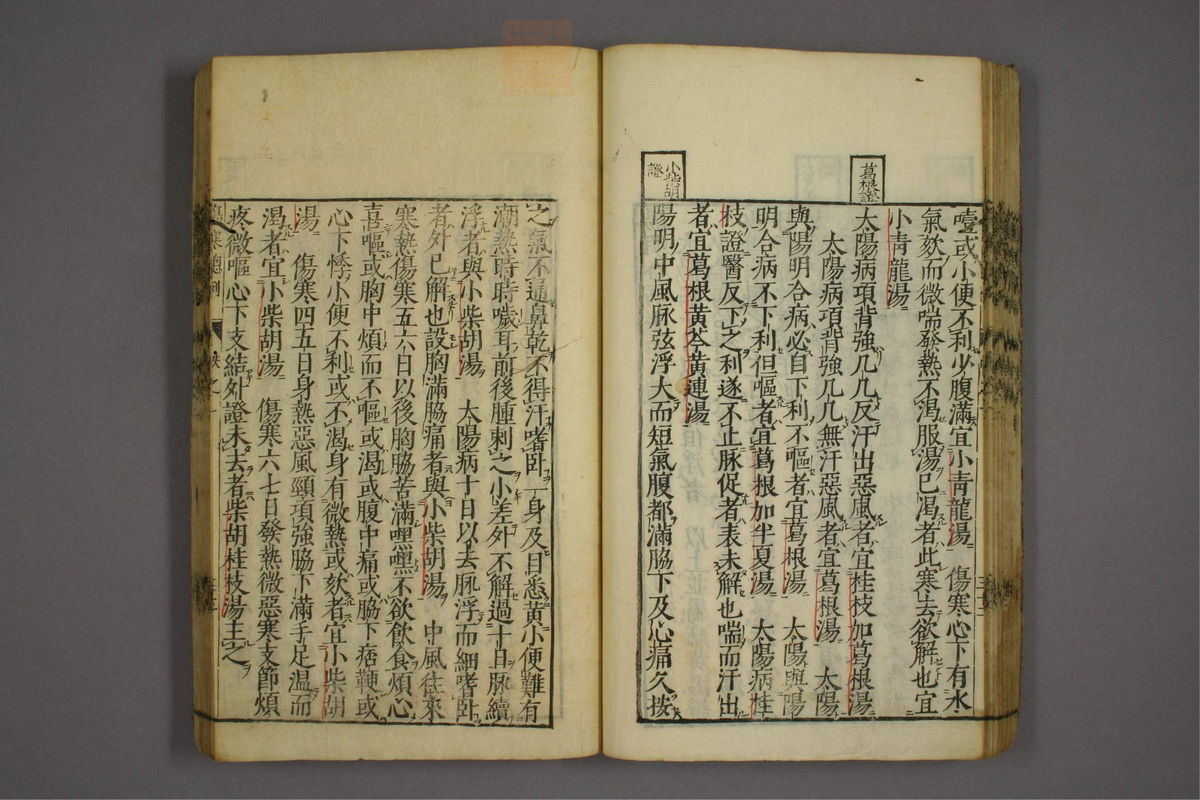 噎或小便不利少腹滿宜小青龍湯 傷寒心下有水
氣欬而微喘發熱不渴服湯已渴者此寒去欲解也宜
小青龍湯
葛根證
太陽病項背強几几反汗出惡風者宜桂枝加葛根湯
太陽病項背強几几無汗惡風者宜葛根湯 太陽
與陽明合病必自下利不嘔者宜葛根湯 太陽與陽
明合病不下利但嘔者宜葛根加半夏湯 太陽病桂
枝證醫反下之利遂不止脉促者表未解也喘而汗出
者宜葛根黃芩黃連湯
小柴胡證
陽明中風脉弦浮大而短氣腹都滿脇下及心痛久按
之氣不通鼻乾不得汗嗜卧一身及目悉黃小便難有
潮熱時時噦耳前後腫刺之小差外不解過十日脉續
浮者與小柴胡湯 太陽病十日以去脉浮而細嗜卧
者外已解也設胸滿脇痛者與小柴胡湯 中風往來
寒熱傷寒五六日以後胸脇苦滿嘿嘿不欲飲食煩心
喜嘔或胸中煩而不嘔或渴或腹中痛或脇下痞鞕或
心下悸小便不利或不渴身有微熱或欬者宜小柴胡
湯 傷寒四五日身熱惡風頸項強脇下滿手足温而
渴者宜小柴胡湯 傷寒六七日發熱微惡寒支節煩
疼微嘔心下支結外證未去者柴胡桂枝湯主之